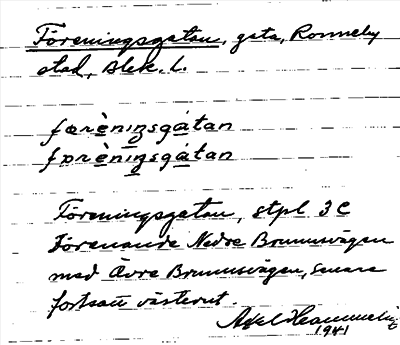 Föreningsgatan, gata, Ronneby
stad, Blek. l.
færèningsgátan
førèningsgátan
Föreningsgatan, stpl 3 C
Förenande Nedre Brunnsvägen
med Övre Brunnsvägen, senare
fortsatt västerut.
Axel
1941